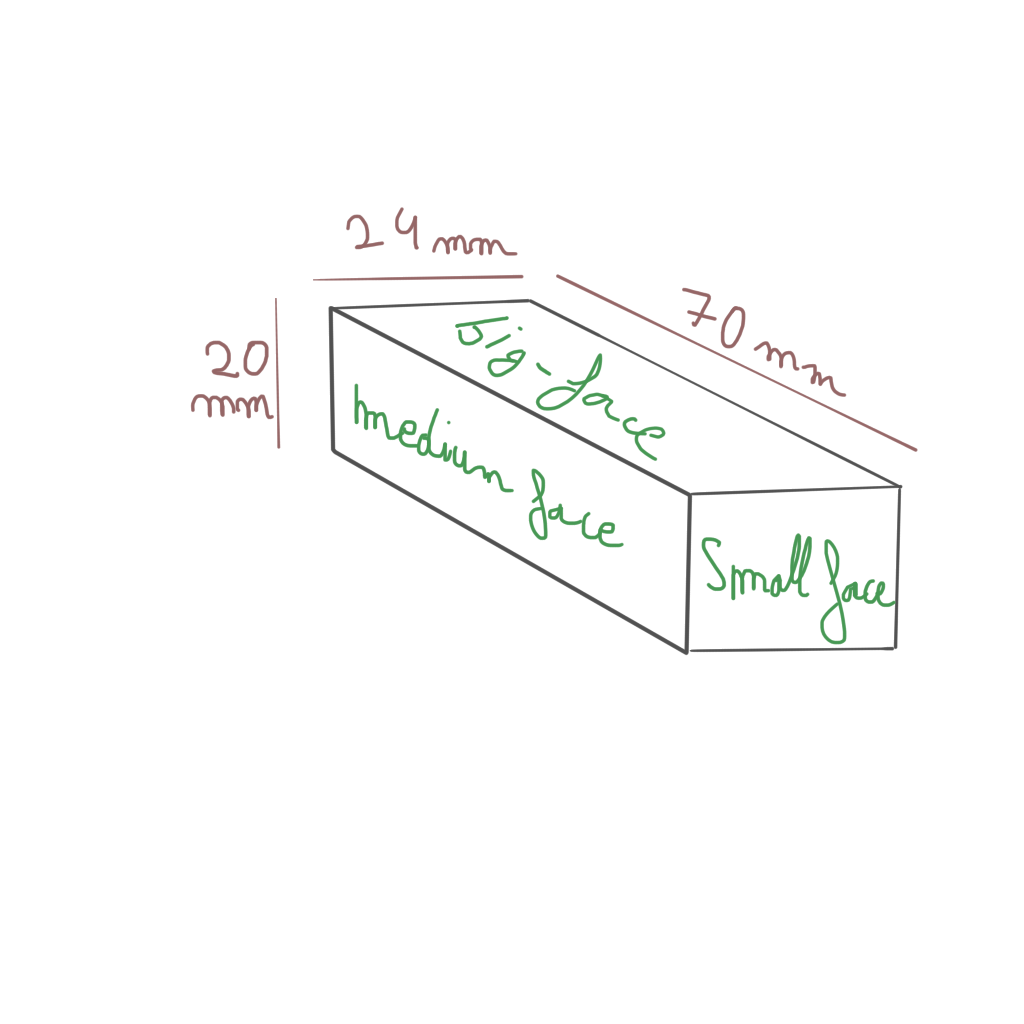 24 mm
70 mm
20
mm
Jig-face
medium face
Small face